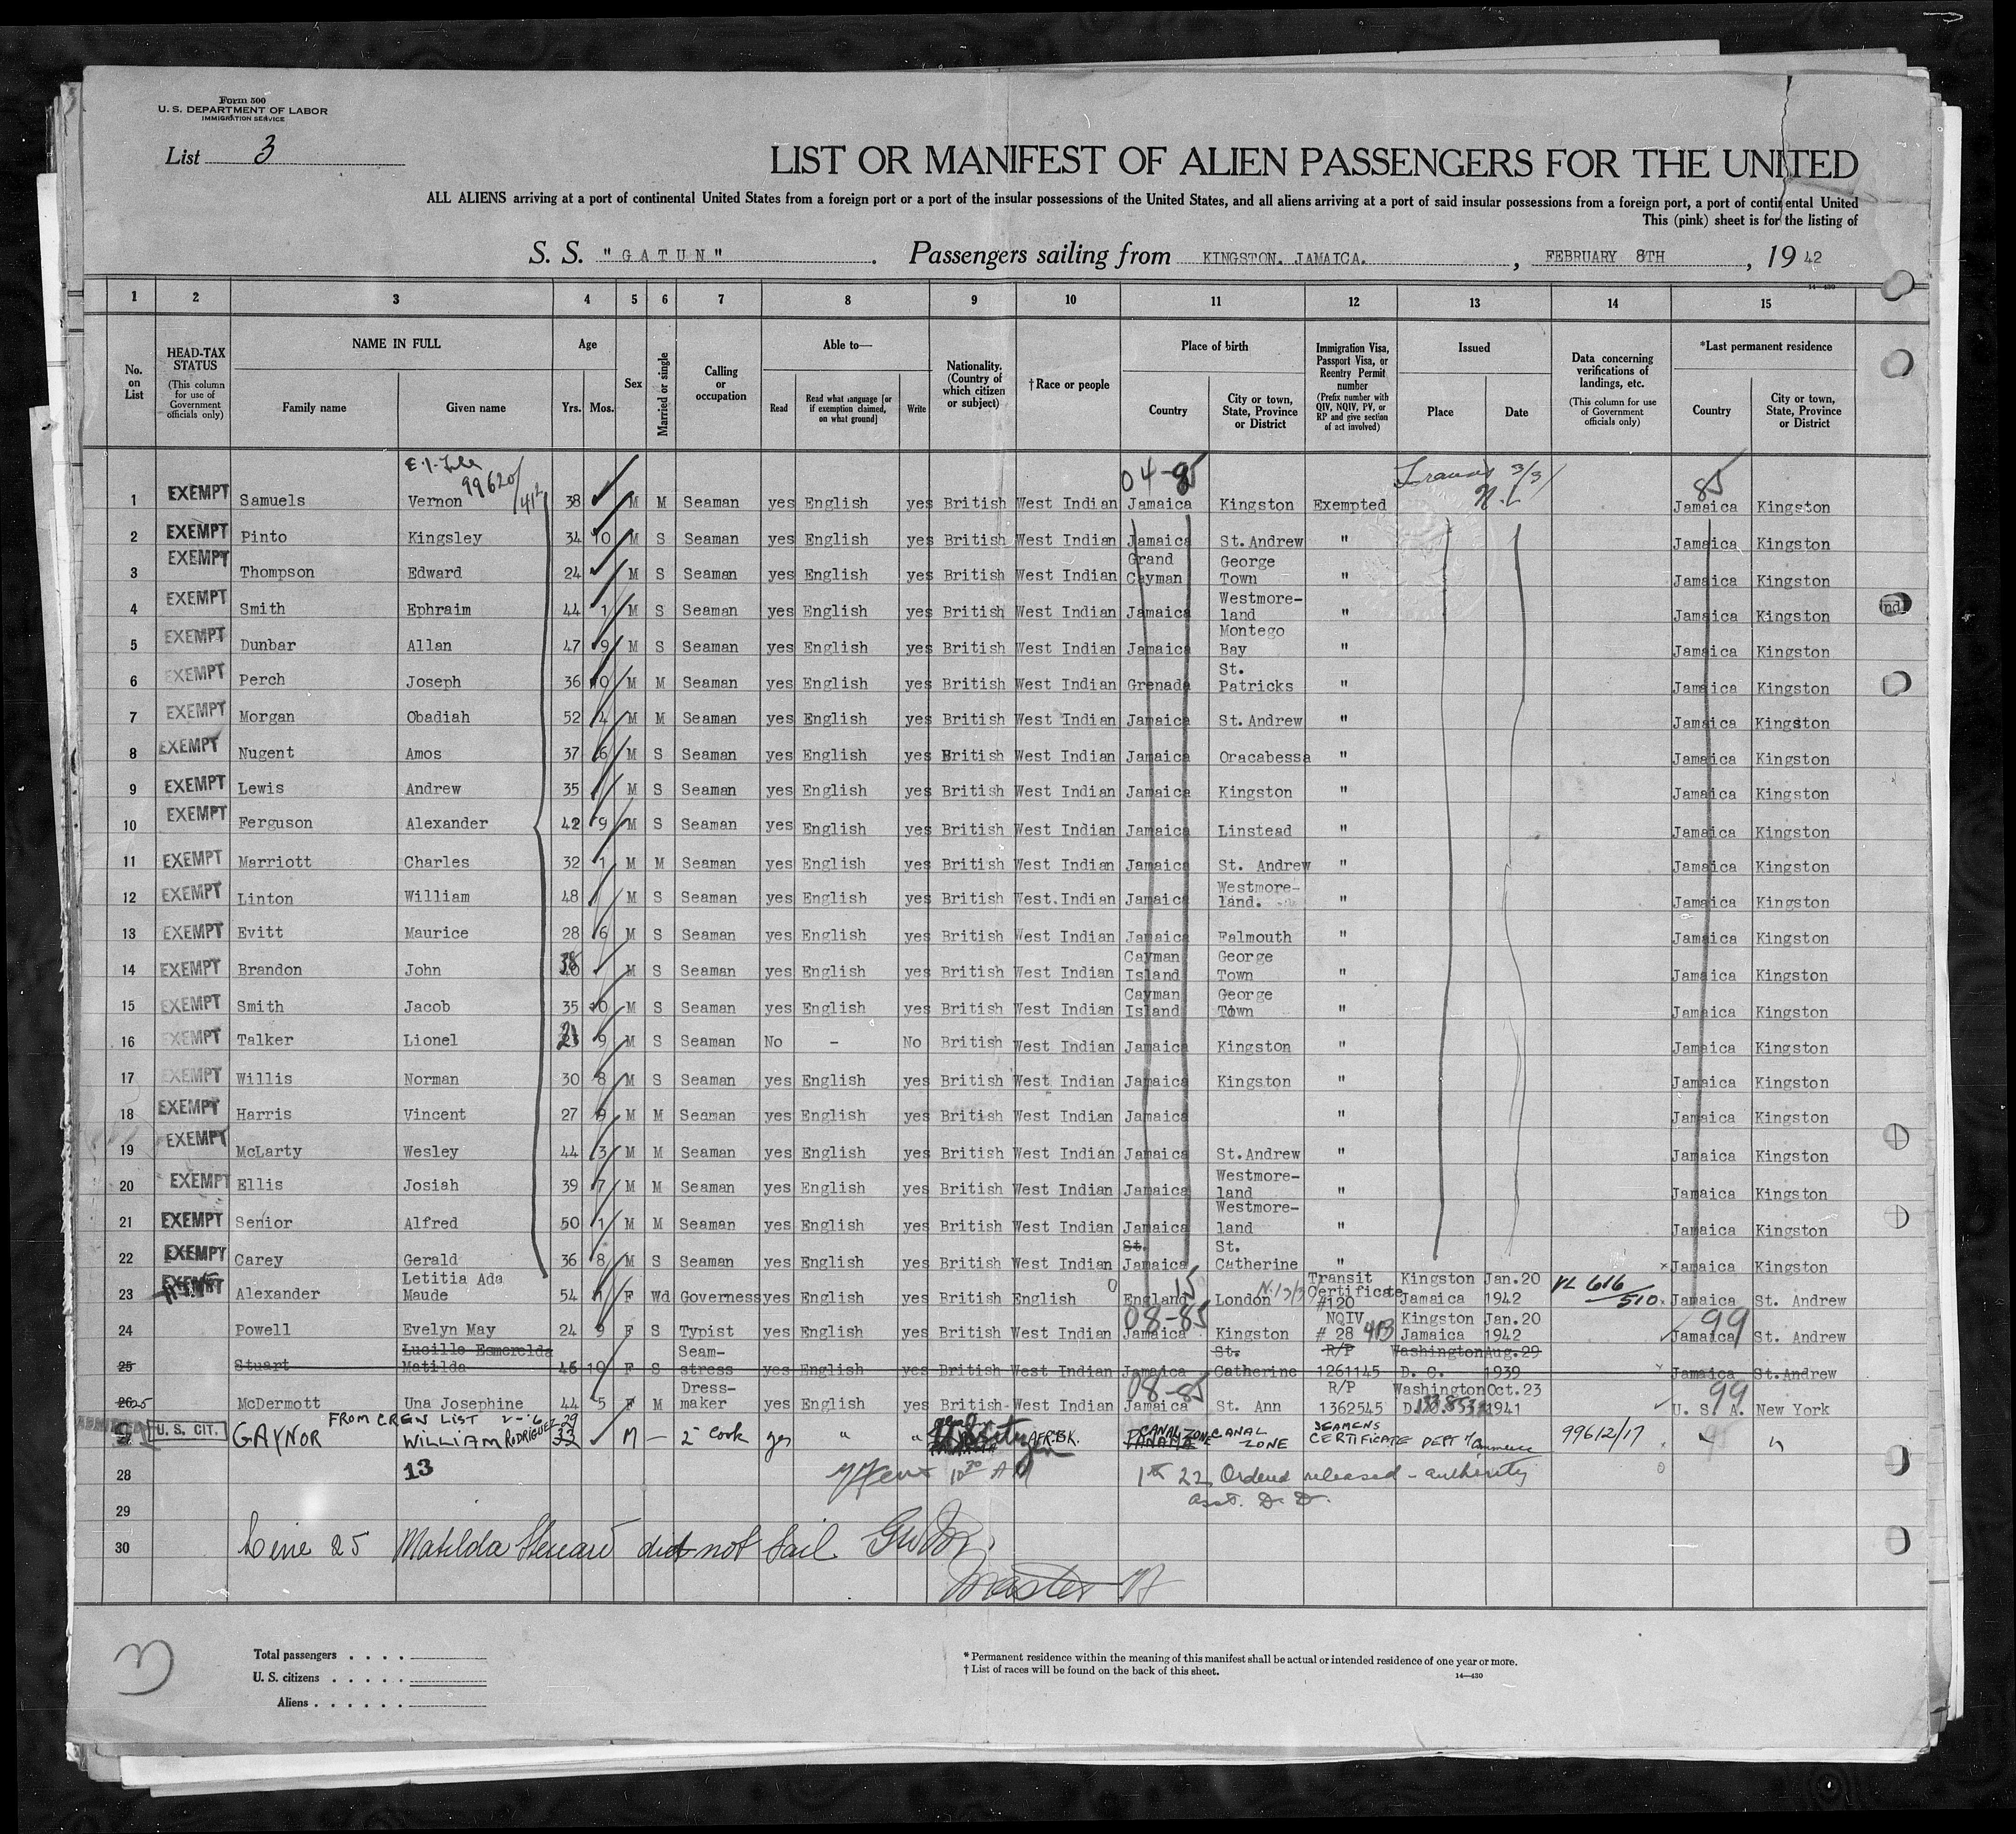 Form 500
U. S. DEPARTMENT OF LABOR
IMMIGRATION SERVICE
List 3
LIST OR MANIFEST OF ALIEN PASSENGERS FOR THE UNITED
ALL ALIENS arriving at a port of continental United States from a foreign port or a port of the insular possessions of the United States, and all aliens arriving at a port of said insular possessions from a foreign port, a port of continental United
This (pink) sheet is for the listing of
S. S. "GATUN". Passengers sailing from KINGSTON. JAMAICA., FEBRUARY 8TH, 1942
14-430
1 2 3 4 5 6 7 8 9 10 11 12 13 14 15
No. on List
HEAD-TAX STATUS (This column for use of Government officials only)
NAME IN FULL
Family name
Given name
Age
Yrs. Mos.
Sex
Married or single
Calling or occupation
Able to—
Read
Read what language [or if exemption claimed, on what ground]
Write
Nationality. (Country of which citizen or subject)
†Race or people
Place of birth
Country
City or town, State, Province or District
Immigration Visa, Passport Visa, or Reentry Permit number (Prefix number with QIV, NQIV, PV, or RP and give section of act involved)
Issued
Place
Date
Data concerning verifications of landings, etc. (This column for use of Government officials only)
*Last permanent residence
Country
City or town, State, Province or District
99620/412 04-85 3/3/ 85
1 EXEMPT Samuels Vernon 38 M M Seaman yes English yes British West Indian Jamaica Kingston Exempted Jamaica Kingston
2 EXEMPT Pinto Kingsley 34 10 M S Seaman yes English yes British West Indian Jamaica St. Andrew " Jamaica Kingston
3 EXEMPT Thompson Edward 24 M S Seaman yes English yes British West Indian Grand Cayman George Town " Jamaica Kingston
4 EXEMPT Smith Ephraim 44 1 M S Seaman yes English yes British West Indian Jamaica Westmore-land " Jamaica Kingston
5 EXEMPT Dunbar Allan 47 9 M S Seaman yes English yes British West Indian Jamaica Montego Bay " Jamaica Kingston
6 EXEMPT Perch Joseph 36 10 M M Seaman yes English yes British West Indian Grenada St. Patricks " Jamaica Kingston
7 EXEMPT Morgan Obadiah 52 4 M M Seaman yes English yes British West Indian Jamaica St. Andrew " Jamaica Kingston
8 EXEMPT Nugent Amos 37 6 M S Seaman yes English yes British West Indian Jamaica Oracabessa " Jamaica Kingston
9 EXEMPT Lewis Andrew 35 M S Seaman yes English yes British West Indian Jamaica Kingston " Jamaica Kingston
10 EXEMPT Ferguson Alexander 42 9 M S Seaman yes English yes British West Indian Jamaica Linstead " Jamaica Kingston
11 EXEMPT Marriott Charles 32 1 M M Seaman yes English yes British West Indian Jamaica St. Andrew " Jamaica Kingston
12 EXEMPT Linton William 48 M S Seaman yes English yes British West.Indian Jamaica Westmore-land. " Jamaica Kingston
13 EXEMPT Evitt Maurice 28 6 M S Seaman yes English yes British West Indian Jamaica Falmouth " Jamaica Kingston
14 EXEMPT Brandon John 38 M S Seaman yes English yes British West Indian Cayman Island George Town " Jamaica Kingston
15 EXEMPT Smith Jacob 35 10 M S Seaman yes English yes British West Indian Cayman Island George Town " Jamaica Kingston
16 EXEMPT Talker Lionel 9 M S Seaman No - No British West Indian Jamaica Kingston " Jamaica Kingston
17 EXEMPT Willis Norman 30 8 M S Seaman yes English yes British West Indian Jamaica Kingston " Jamaica Kingston
18 EXEMPT Harris Vincent 27 9 M M Seaman yes English yes British West Indian Jamaica " Jamaica Kingston
19 EXEMPT McLarty Wesley 44 3 M M Seaman yes English yes British West Indian Jamaica St. Andrew " Jamaica Kingston
20 EXEMPT Ellis Josiah 39 7 M M Seaman yes English yes British West Indian Jamaica Westmore-land " Jamaica Kingston
21 EXEMPT Senior Alfred 50 1 M M Seaman yes English yes British West Indian Jamaica Westmore-land " Jamaica Kingston
22 EXEMPT Carey Gerald 36 8 M S Seaman yes English yes British West Indian St. Jamaica St. Catherine " Jamaica Kingston
23 EXEMPT Alexander Letitia Ada Maude 54 1 F Wd Governess yes English yes British English England 15 London Transit Certificate #120 Kingston Jamaica Jan.20 1942 VL 616/510 Jamaica St. Andrew
24 Powell Evelyn May 24 9 F S Typist yes English yes British West Indian 08-85 Jamaica Kingston NQIV # 28 413 Kingston Jamaica Jan.20 1942 99 Jamaica St. Andrew
25 Stuart Lucille Esmerelda Matilda 46 10 F S Seam-stress yes English yes British West Indian Jamaica St. Catherine R/P 1261145 Washington D. C. Aug.29 1939 Jamaica St. Andrew
26 25 McDermott Una Josephine 44 5 F M Dress-maker yes English yes British West Indian 08-85 Jamaica St. Ann R/P 1362545 Washington D. C. Oct.23 1941 99 U. S. A. New York
FROM CREW LIST
U. S. CIT. GAYNOR WILLIAM RODRIGUEZ 29 33 M — 2 Cook yes " " AFR.BK. PANAMA CANAL ZONE CANAL ZONE SEAMENS CERTIFICATE DEPT of Commerce 99612/17 "
28 13 Ordered released - authority
29 Asst. D. D.
30 Line 25 Matilda Steuard did not sail
Master
3
Total passengers . . . .
U. S. citizens . . . . .
Aliens . . . . . .
* Permanent residence within the meaning of this manifest shall be actual or intended residence of one year or more.
† List of races will be found on the back of this sheet.
14—430